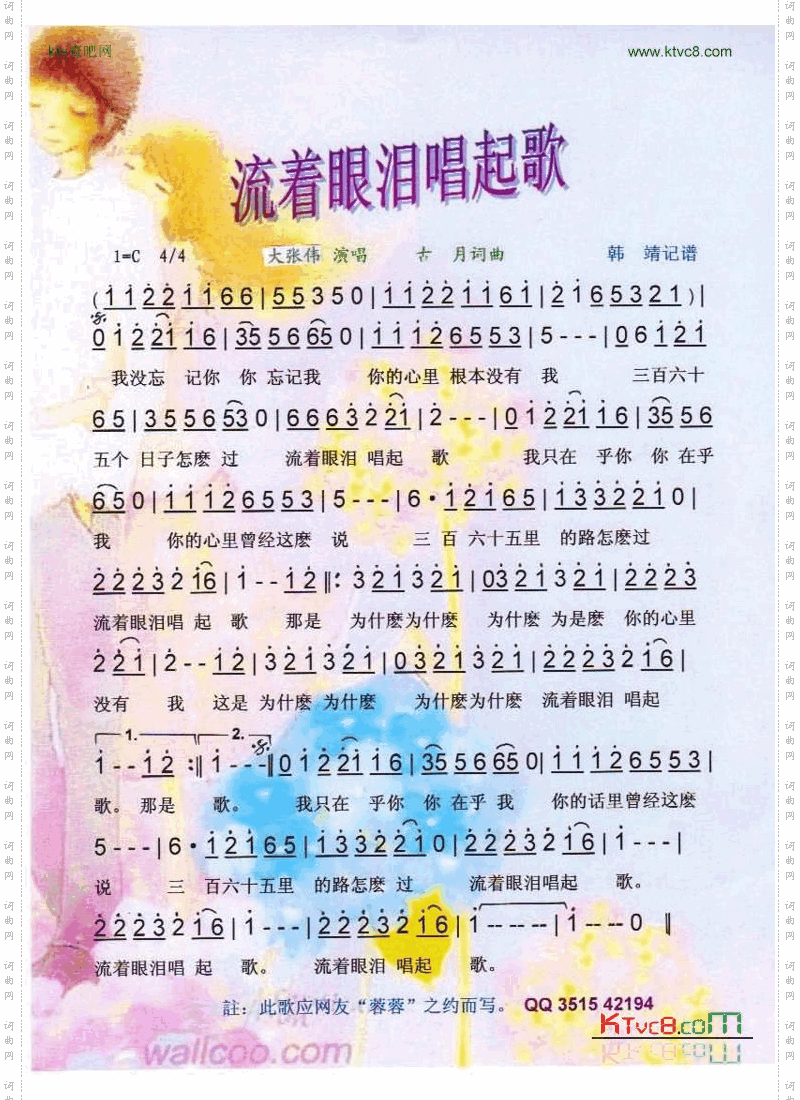 www.ktvc8.com
流着眼泪唱起歌
1=C 4/4 大张伟 演唱 古 月词曲 韩 靖记谱
(1 1 2 2 1 1 6 6 | 5 5 3 5 0 | 1 1 2 2 1 1 6 1 | 2 1 6 5 3 2 1 ) |
0 1 2 2 1 1 6 | 3 5 5 6 6 5 0 | 1 1 1 2 6 5 5 3 | 5 - - - | 0 6 1 2 1
我没忘 记你 你 忘记我 你的心里 根本没有 我 三百六十
6 5 | 3 5 5 6 5 3 0 | 6 6 6 3 2 2 1 | 2 - - - | 0 1 2 2 1 1 6 | 3 5 5 6
五个 日子怎麽 过 流着眼泪 唱起 歌 我只在 乎你 你 在乎
6 5 0 | 1 1 1 2 6 5 5 3 | 5 - - - | 6 · 1 2 1 6 5 | 1 3 3 2 2 1 0 |
我 你的心里曾经这麽 说 三 百 六十五里 的路怎麽过
2 2 2 3 2 1 6 | 1 - - 1 2 ‖: 3 2 1 3 2 1 | 0 3 2 1 3 2 1 | 2 2 2 3
流着眼泪唱 起 歌 那是 为什麽为什麽 为什麽 为是麽 你的心里
2 2 1 | 2 - - 1 2 | 3 2 1 3 2 1 | 0 3 2 1 3 2 1 | 2 2 2 3 2 1 6 |
没有 我 这是 为什麽 为什麽 为什麽为什麽 流着眼泪 唱起
1. 2.
1 - - 1 2 :‖ 1 - - - ‖ 0 1 2 2 1 1 6 | 3 5 5 6 6 5 0 | 1 1 1 2 6 5 5 3 |
歌。 那是 歌。 我只在 乎你 你 在乎 我 你的话里曾经这麽
5 - - - | 6 · 1 2 1 6 5 | 1 3 3 2 2 1 0 | 2 2 2 3 2 1 6 | 1 - - - |
说 三 百六十五里 的路怎麽 过 流着眼泪唱起 歌。
2 2 2 3 2 1 6 | 1 - - - | 2 2 2 3 2 1 6 | 1 -- -- -- | 1 -- -- 0 ‖
流着眼泪唱 起 歌。 流着眼泪 唱起 歌。
註：此歌应网友“蓉蓉”之约而写。 QQ 3515 42194
KTvc8.com
wallcoo.com